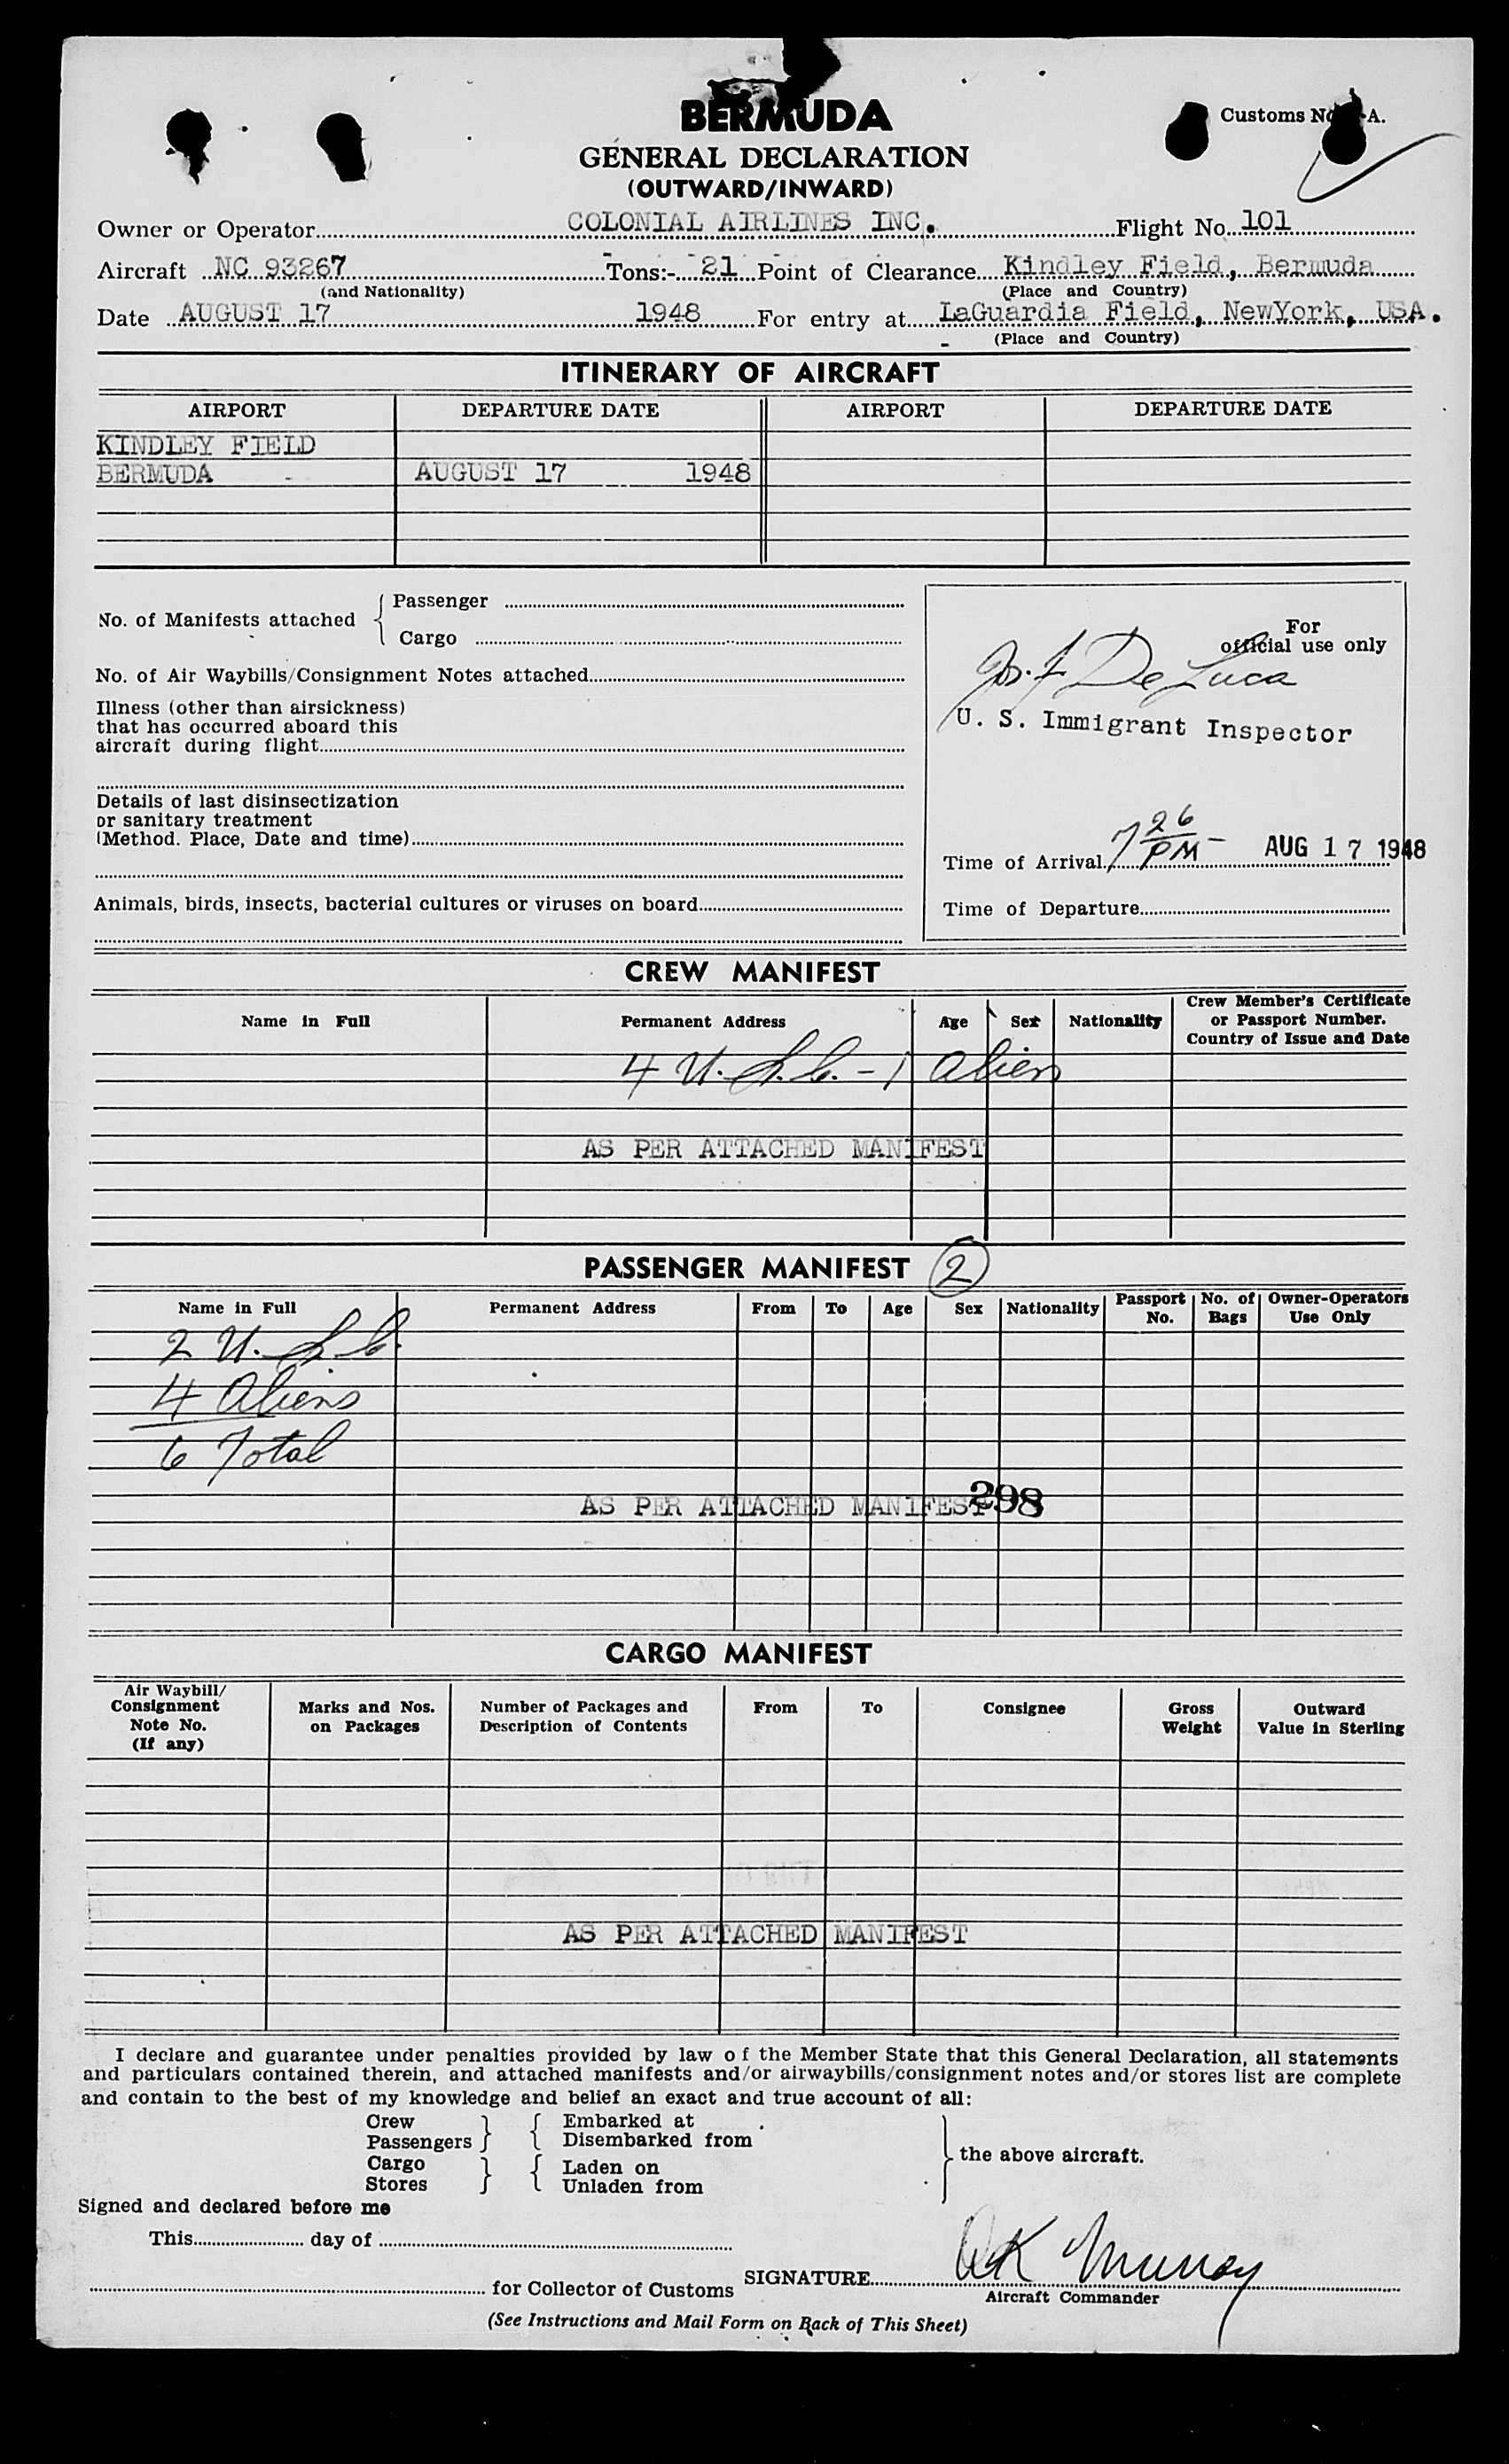 BERMUDA
Customs No. A.
GENERAL DECLARATION
(OUTWARD/INWARD)
Owner or Operator COLONIAL AIRLINES INC. Flight No. 101
Aircraft NC 93267 Tons:- 21 Point of Clearance Kindley Field, Bermuda
(and Nationality) (Place and Country)
Date AUGUST 17 1948 For entry at LaGuardia Field, NewYork, USA.
(Place and Country)
ITINERARY OF AIRCRAFT
AIRPORT DEPARTURE DATE AIRPORT DEPARTURE DATE
KINDLEY FIELD
BERMUDA - AUGUST 17 1948
No. of Manifests attached { Passenger
Cargo
No. of Air Waybills/Consignment Notes attached
Illness (other than airsickness)
that has occurred aboard this
aircraft during flight
Details of last disinsectization
or sanitary treatment
(Method. Place, Date and time)
Animals, birds, insects, bacterial cultures or viruses on board
For
official use only
Jos. F. DeLuca
U. S. Immigrant Inspector
Time of Arrival 7 26 PM - AUG 17 1948
Time of Departure
CREW MANIFEST
Name in Full Permanent Address Age Sex Nationality Crew Member's Certificate
or Passport Number.
Country of Issue and Date
4 U.S.C. - 1 Alien
AS PER ATTACHED MANIFEST
PASSENGER MANIFEST 2
Name in Full Permanent Address From To Age Sex Nationality Passport No. No. of Bags Owner-Operators Use Only
2 U.S.C.
4 Aliens
6 Total
AS PER ATTACHED MANIFEST 298
CARGO MANIFEST
Air Waybill/
Consignment
Note No.
(If any)
Marks and Nos.
on Packages
Number of Packages and
Description of Contents
From To Consignee
Gross
Weight
Outward
Value in Sterling
AS PER ATTACHED MANIFEST
I declare and guarantee under penalties provided by law of the Member State that this General Declaration, all statements
and particulars contained therein, and attached manifests and/or airwaybills/consignment notes and/or stores list are complete
and contain to the best of my knowledge and belief an exact and true account of all:
Crew Embarked at
Passengers Disembarked from
the above aircraft.
Cargo Laden on
Stores Unladen from
Signed and declared before me
This day of
for Collector of Customs
SIGNATURE Murray
Aircraft Commander
(See Instructions and Mail Form on Back of This Sheet)